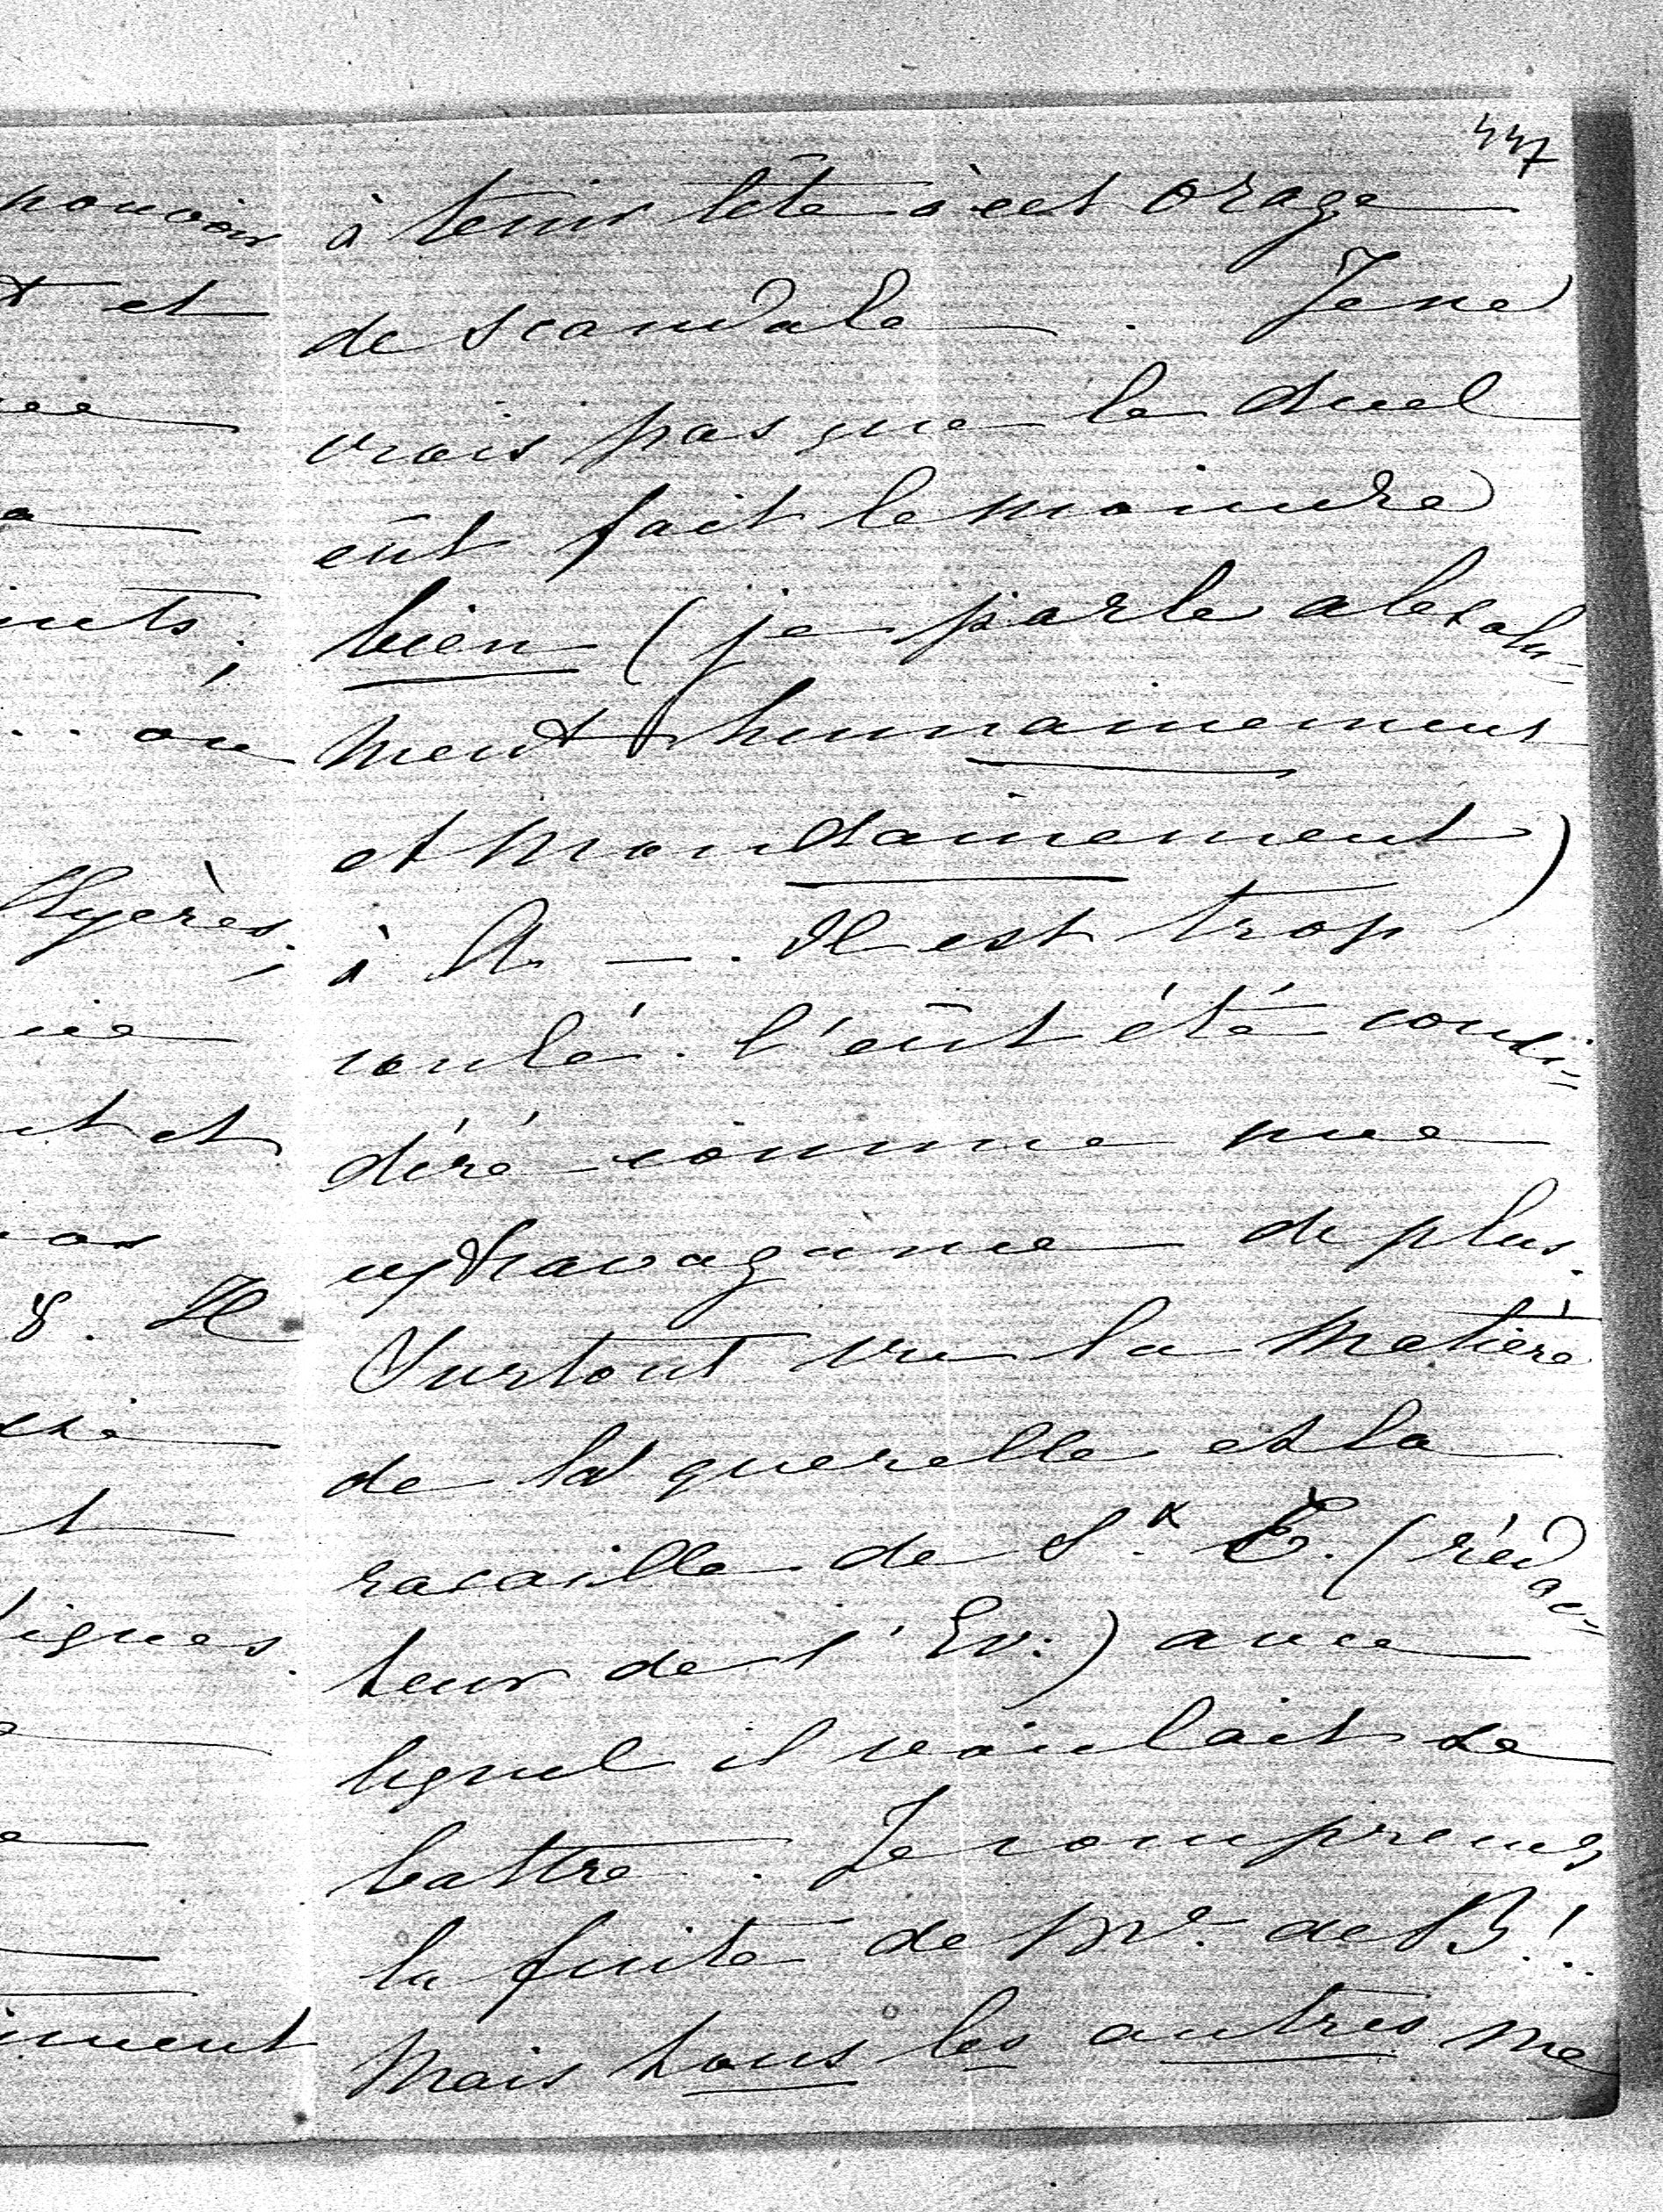 447
à tenir tête à cet orage
de scandale. Je ne
crois pas que le duel
eût fait le moindre
bien (je parle absolu-
ment humainement
et mondainement)
à A —. Il est trop
coulé. C'eût été consi-
déré comme une
extravagance de plus.
Surtout vu la matière
de la querelle et la
racaille de S.x E. (rédac-
teur de l'Ev.) avec
lequel il voulait se
battre. Je comprends
la fuite de Mr. de B.!
Mais tous les autres me
pouvoir
et
ou
Hyères,
et
8. Il
lignes.